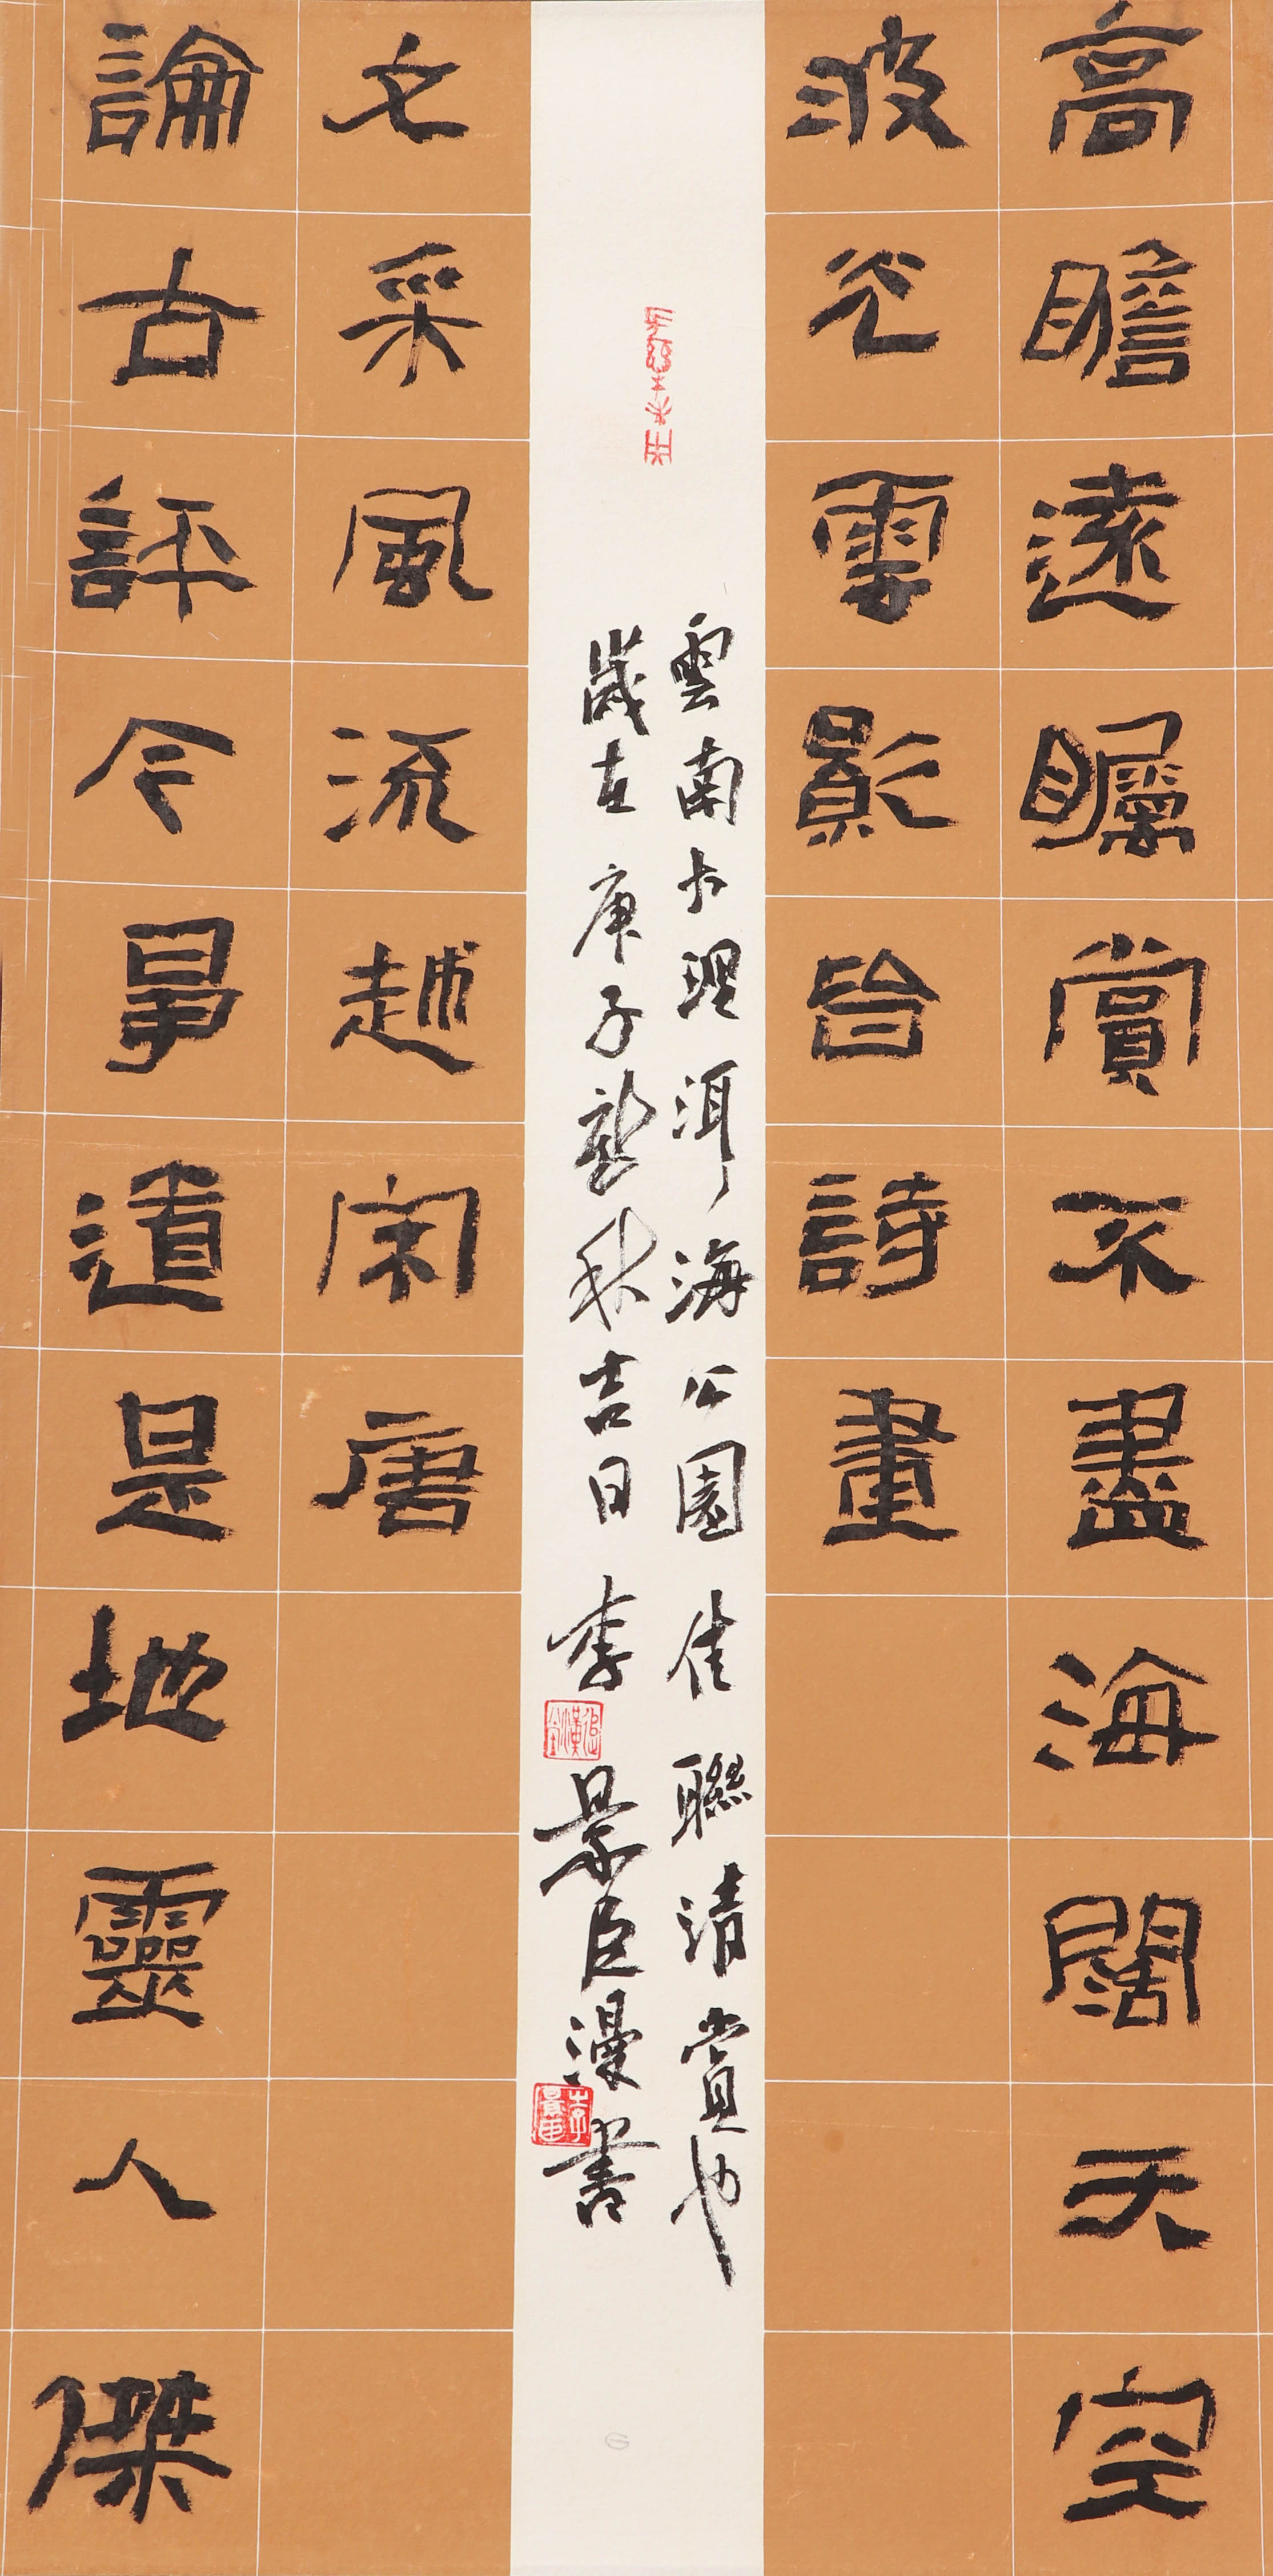 高瞻遠矚賞不盡海闊天空
波光雲影皆詩畫
論古評今事道是地靈人傑
文采風流越宋唐
雲南大理洱海公園佳聯清賞也
歲在庚子新秋吉日李景臣漫書
李景臣